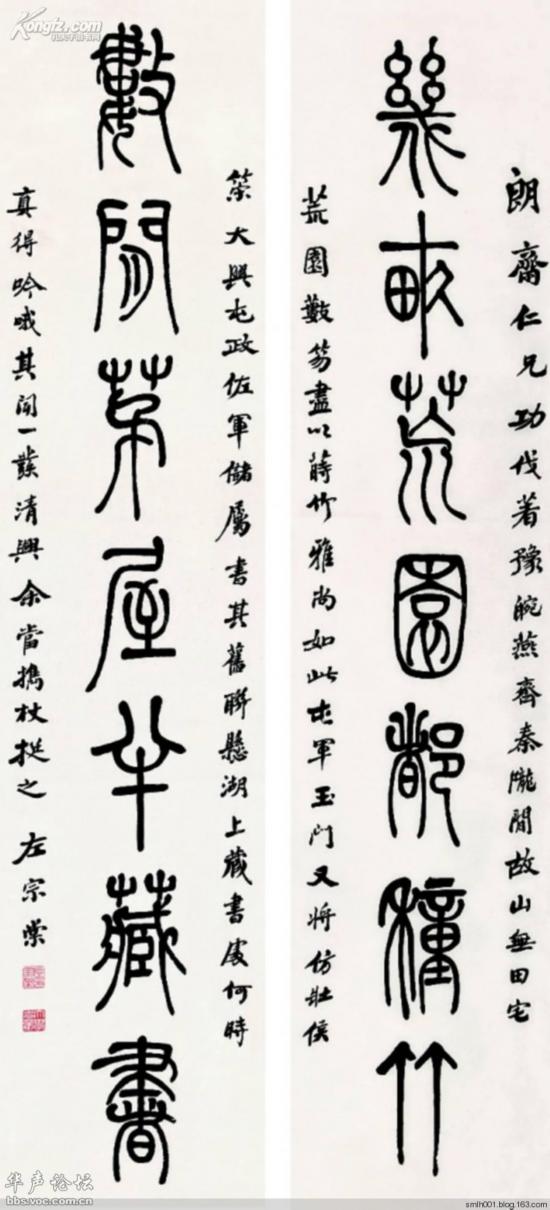 朗齋仁兄功伐著豫皖燕齊秦隴間故山無田宅
幾畝荒園都種竹
荒園數笏盡以蒔竹雅尚如此屯軍玉門又將仿壯侯
策大興屯政佐軍儲屬書其舊聯懸湖上藏書處何時
數間茅屋半藏書
真得吟哦其間一發清興余當攜杖從之 左宗棠
Kongfz.com
华声论坛
bbs.voc.com.cn
smlh001.blog.163.com